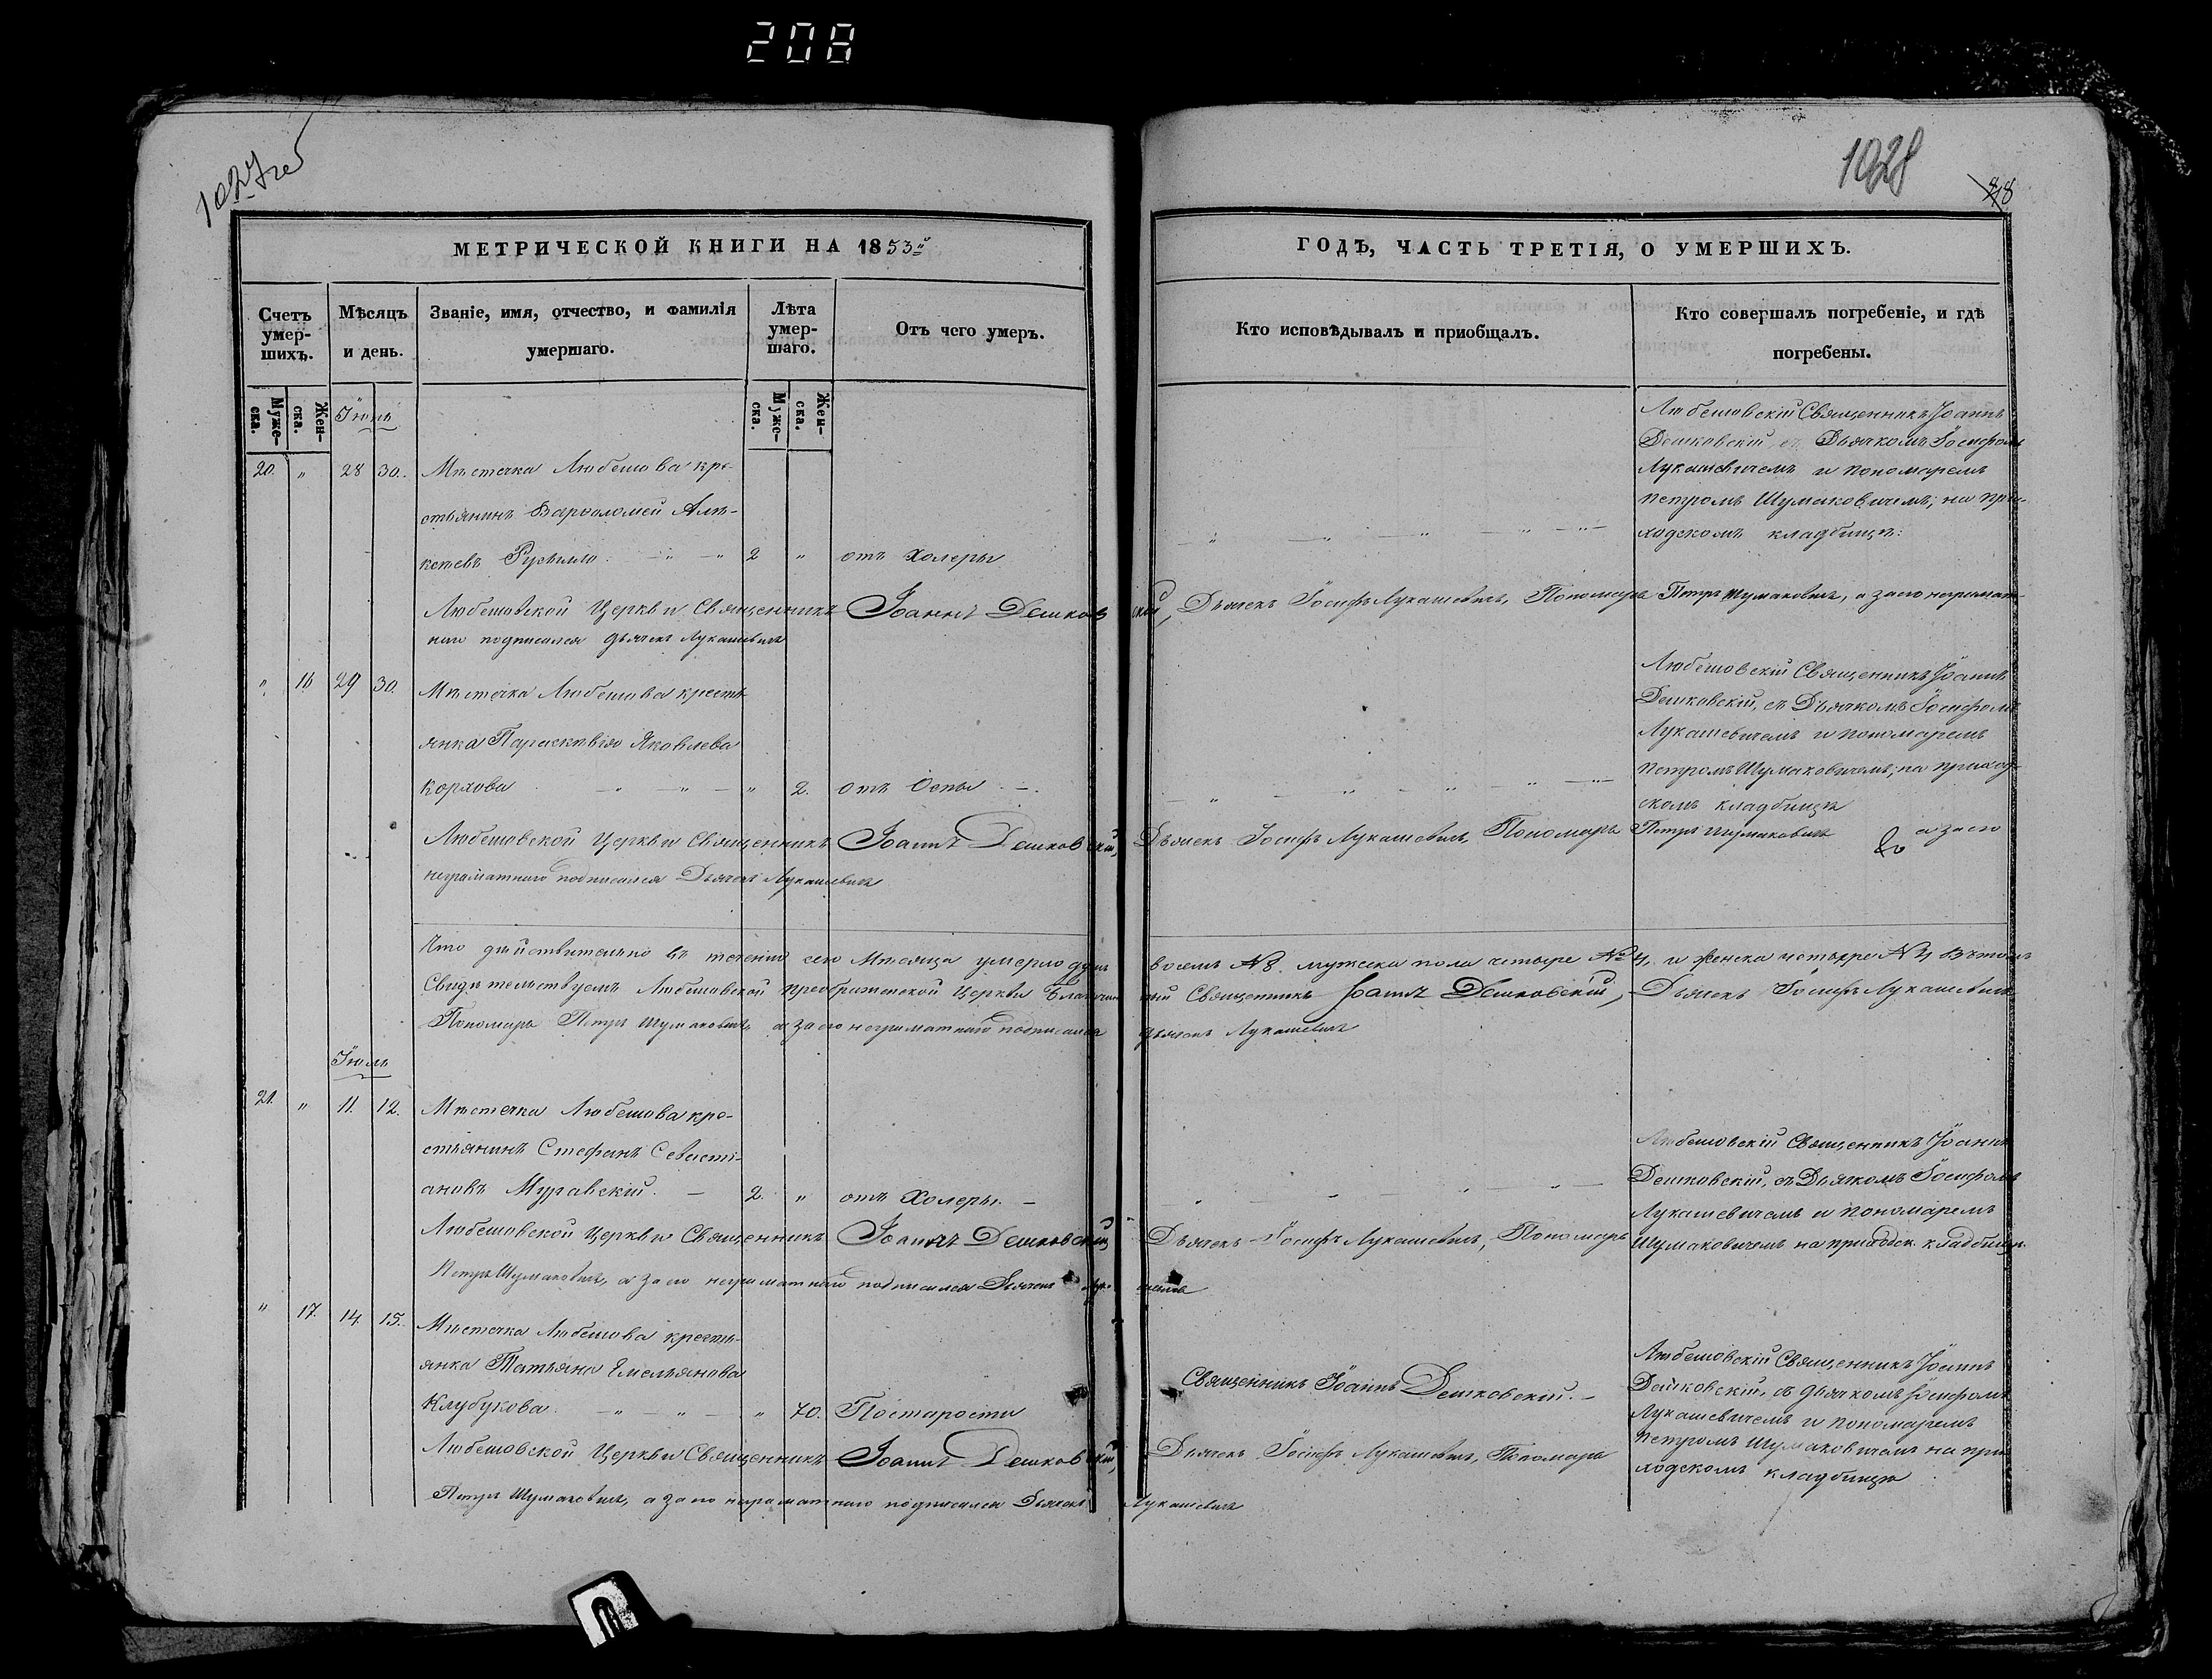 208
1028
МЕТРИЧЕСКОЙ КНИГИ НА 1853й
ГОДЪ, ЧАСТЬ ТРЕТІЯ, О УМЕРШИХЪ.
Счетъ умер-
шихъ.
Мѣсяцъ
и день.
Званіе, имя, отчество, и фамилія
умершаго.
Лѣта
умер-
шаго.
Отъ чего умеръ.
Кто исповѣдывалъ и приобщалъ.
Кто совершалъ погребеніе, и гдѣ
погребены.
Муже-
ска.
Жен-
ска.
Муже-
ска.
Жен-
ска.
Іюнь
20. " 28 30. Мѣстечка Любешова кре-
стьянинъ Варѳоломей Алек-
2 " отъ холеры
Любешовскій Священникъ Іоаннъ
Дешковскій, съ Дьячкомъ Іосифомъ
Лукашевичемъ и пономаремъ
Петромъ Шумаковичемъ; на при-
ходскомъ кладбищѣ.
Любешовской Церкви Священникъ Іоаннъ Дешковскій, Дьячекъ Іосифъ Лукашевичъ, Пономарь Петръ Шумаковичъ, а за его неграмат-
наго подписался Дьячекъ Лукашевичъ
" 16 29 30. Мѣстечка Любешова кресть-
янка Параскевія Яковлева
Корхова " 2. отъ Оспы
Любешовскій Священникъ Іоаннъ
Дешковскій, съ Дьячкомъ Іосифомъ
Лукашевичемъ и пономаремъ
Петромъ Шумаковичемъ; на приход-
скомъ кладбищѣ
Любешовской Церкви Священникъ Іоаннъ Дешковскій, Дьячекъ Іосифъ Лукашевичъ, Пономарь Петръ Шумаковичъ а за его
неграматнаго подписался Дьячекъ Лукашевичъ
Что дѣйствительно въ теченіи сего Мѣсяца умерло душъ восемь №8. мужеска пола четыре №4, и женска четыре №4 въ томъ
Свидѣтельствуемъ Любешовской Преображенской Церкви Благочинный Священникъ Іоаннъ Дешковскій, Дьячекъ Іосифъ Лукашевичъ
Пономарь Петръ Шумаковичъ, а за его неграматнаго подписался Дьячекъ Лукашевичъ
Іюль
21. " 11. 12. Мѣстечка Любешова кре-
стьянинъ Стефанъ Севасті-
ановъ Муравскій. 2. " отъ Холеры.
Любешовскій Священникъ Іоаннъ
Дешковскій, съ Дьячкомъ Іосифомъ
Лукашевичемъ и пономаремъ
Шумаковичемъ на приходск. кладбищѣ.
Любешовской Церкви Священникъ Іоаннъ Дешковскій Дьячекъ Іосифъ Лукашевичъ, Пономарь
Петръ Шумаковичъ, а за его неграматнаго подписался Дьячекъ
" 17. 14. 15. Мѣстечка Любешова кресть-
янка Татьяна Емельянова
Клубукова. " 70. По старости
Священникъ Іоаннъ Дешковскій.
Любешовскій Священникъ Іоаннъ
Дешковскій, съ дьячкомъ Іосифомъ
Лукашевичемъ и пономаремъ
Петромъ Шумаковичемъ на при-
ходскомъ кладбищѣ
Любешовской Церкви Священникъ Іоаннъ Дешковскій, Дьячекъ Іосифъ Лукашевичъ, Пономарь
Петръ Шумаковичъ, а за его неграматнаго подписался Дьячекъ Лукашевичъ